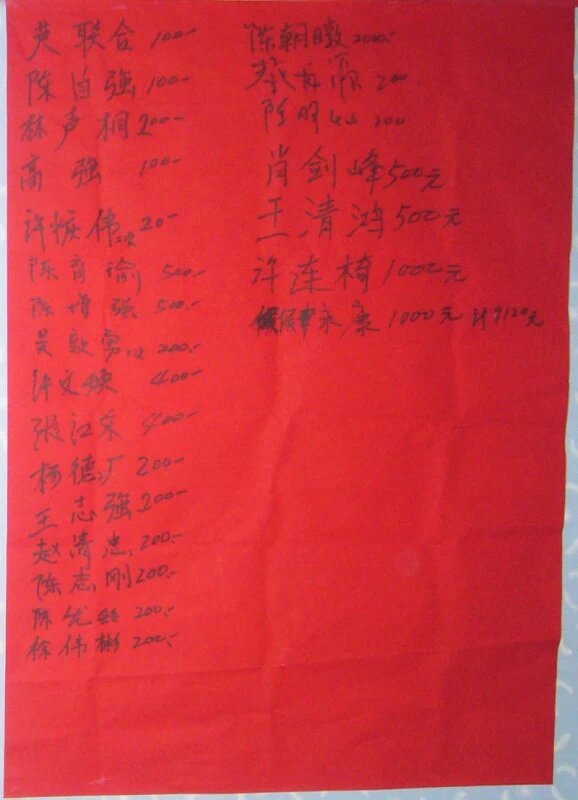 黄联合 100-
陈自强 100-
林声桐 200-
高强 100-
许 伟 20-
陈育瑜 500.-
陈增强 500.-
吴 200.-
许文焕 400-
张江东 400-
柯德厂 200-
王志强 200-
赵清忠 200.-
陈志刚 200.-
陈优 200.-
徐伟彬 200.-
陈朝暾 2000.-
龙源 200
陈明 200
肖剑峰 500元
王清鸿 500元
许连椅 1000元
侯 永 1000元 计9120元